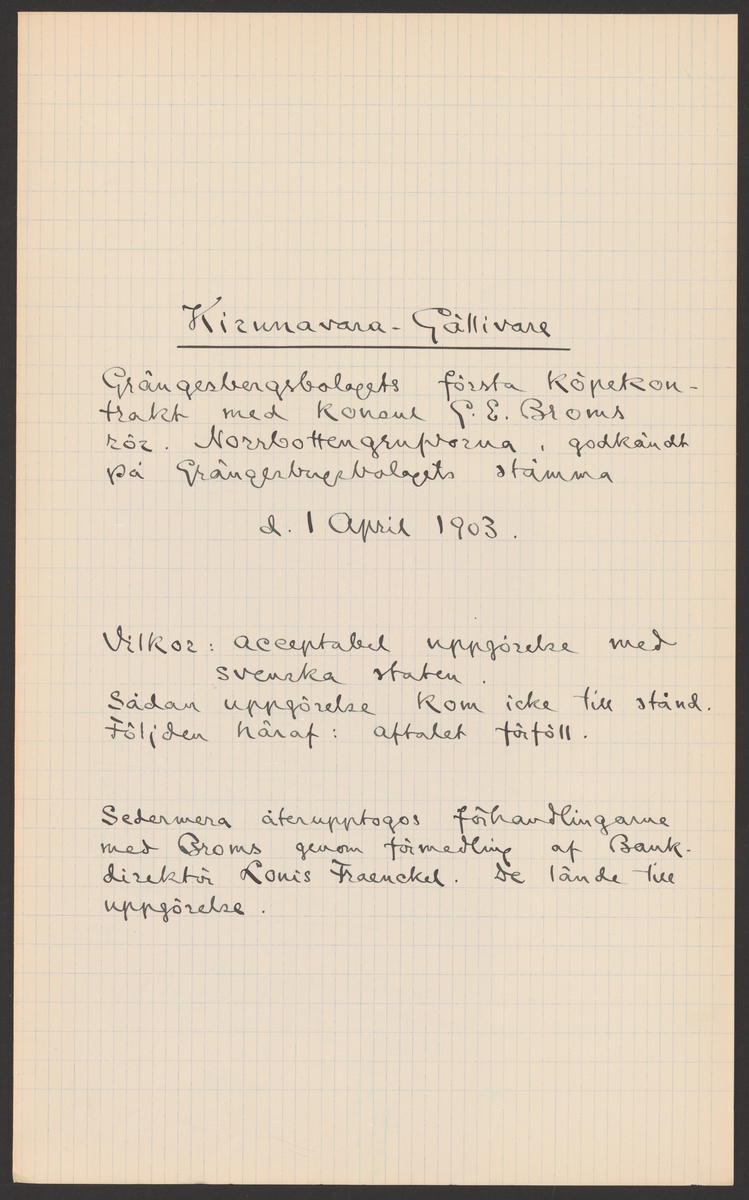 Kirunavara - Gällivare
Grängesbergsbolagets första köpekon-
trakt med konsul G. E. Broms
rör. Norrbottengruvorna, godkändt
på Grängesbergsbolagets stämma
d. 1 April 1903.
Vilkor: acceptabel uppgörelse med
svenska staten.
Sådan uppgörelse kom icke till stånd.
Följden häraf: aftalet förföll.
Sedermera återupptogos förhandlingarne
med Broms genom förmedling af Bank-
direktör Louis Fraenckel. De lände till
uppgörelse.